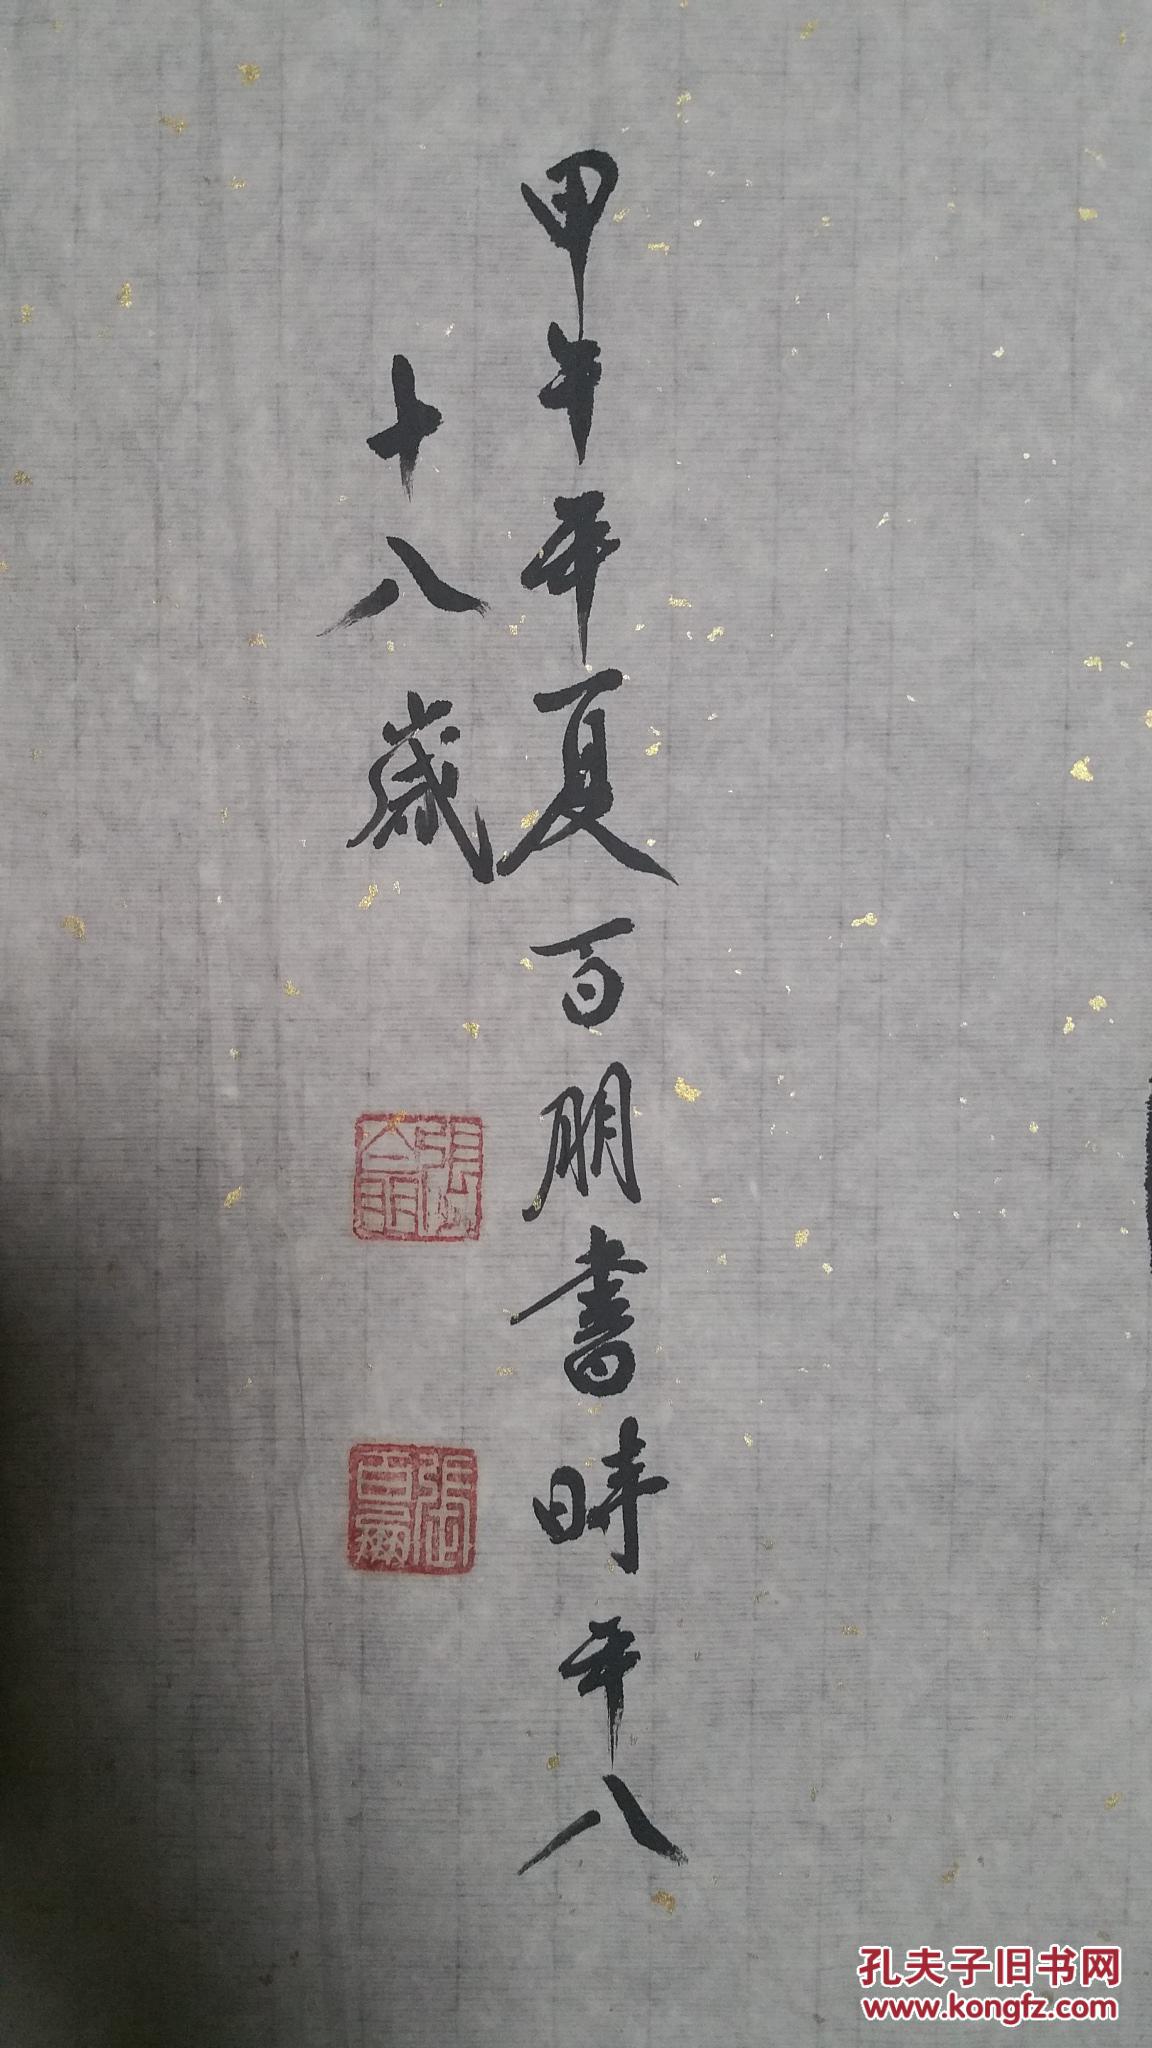 甲午年夏百朋書時年八
十八歲
孔夫子旧书网
www.kongfz.com